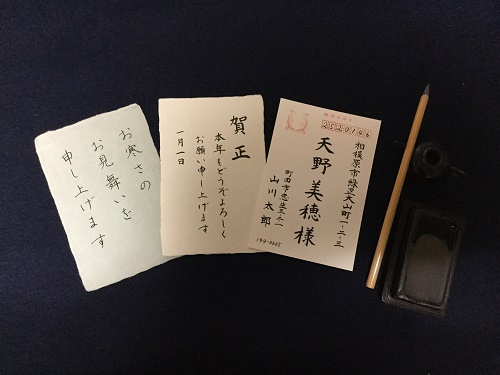 お寒さの
お見舞いを
申し上げます
賀正
本年もどうぞよろしく
お願い申し上げます
一月一日
2520146
相模原市緑区大山町一-二-三
天野美穂様
町田市忠生三-二一
山川太郎
194-0035